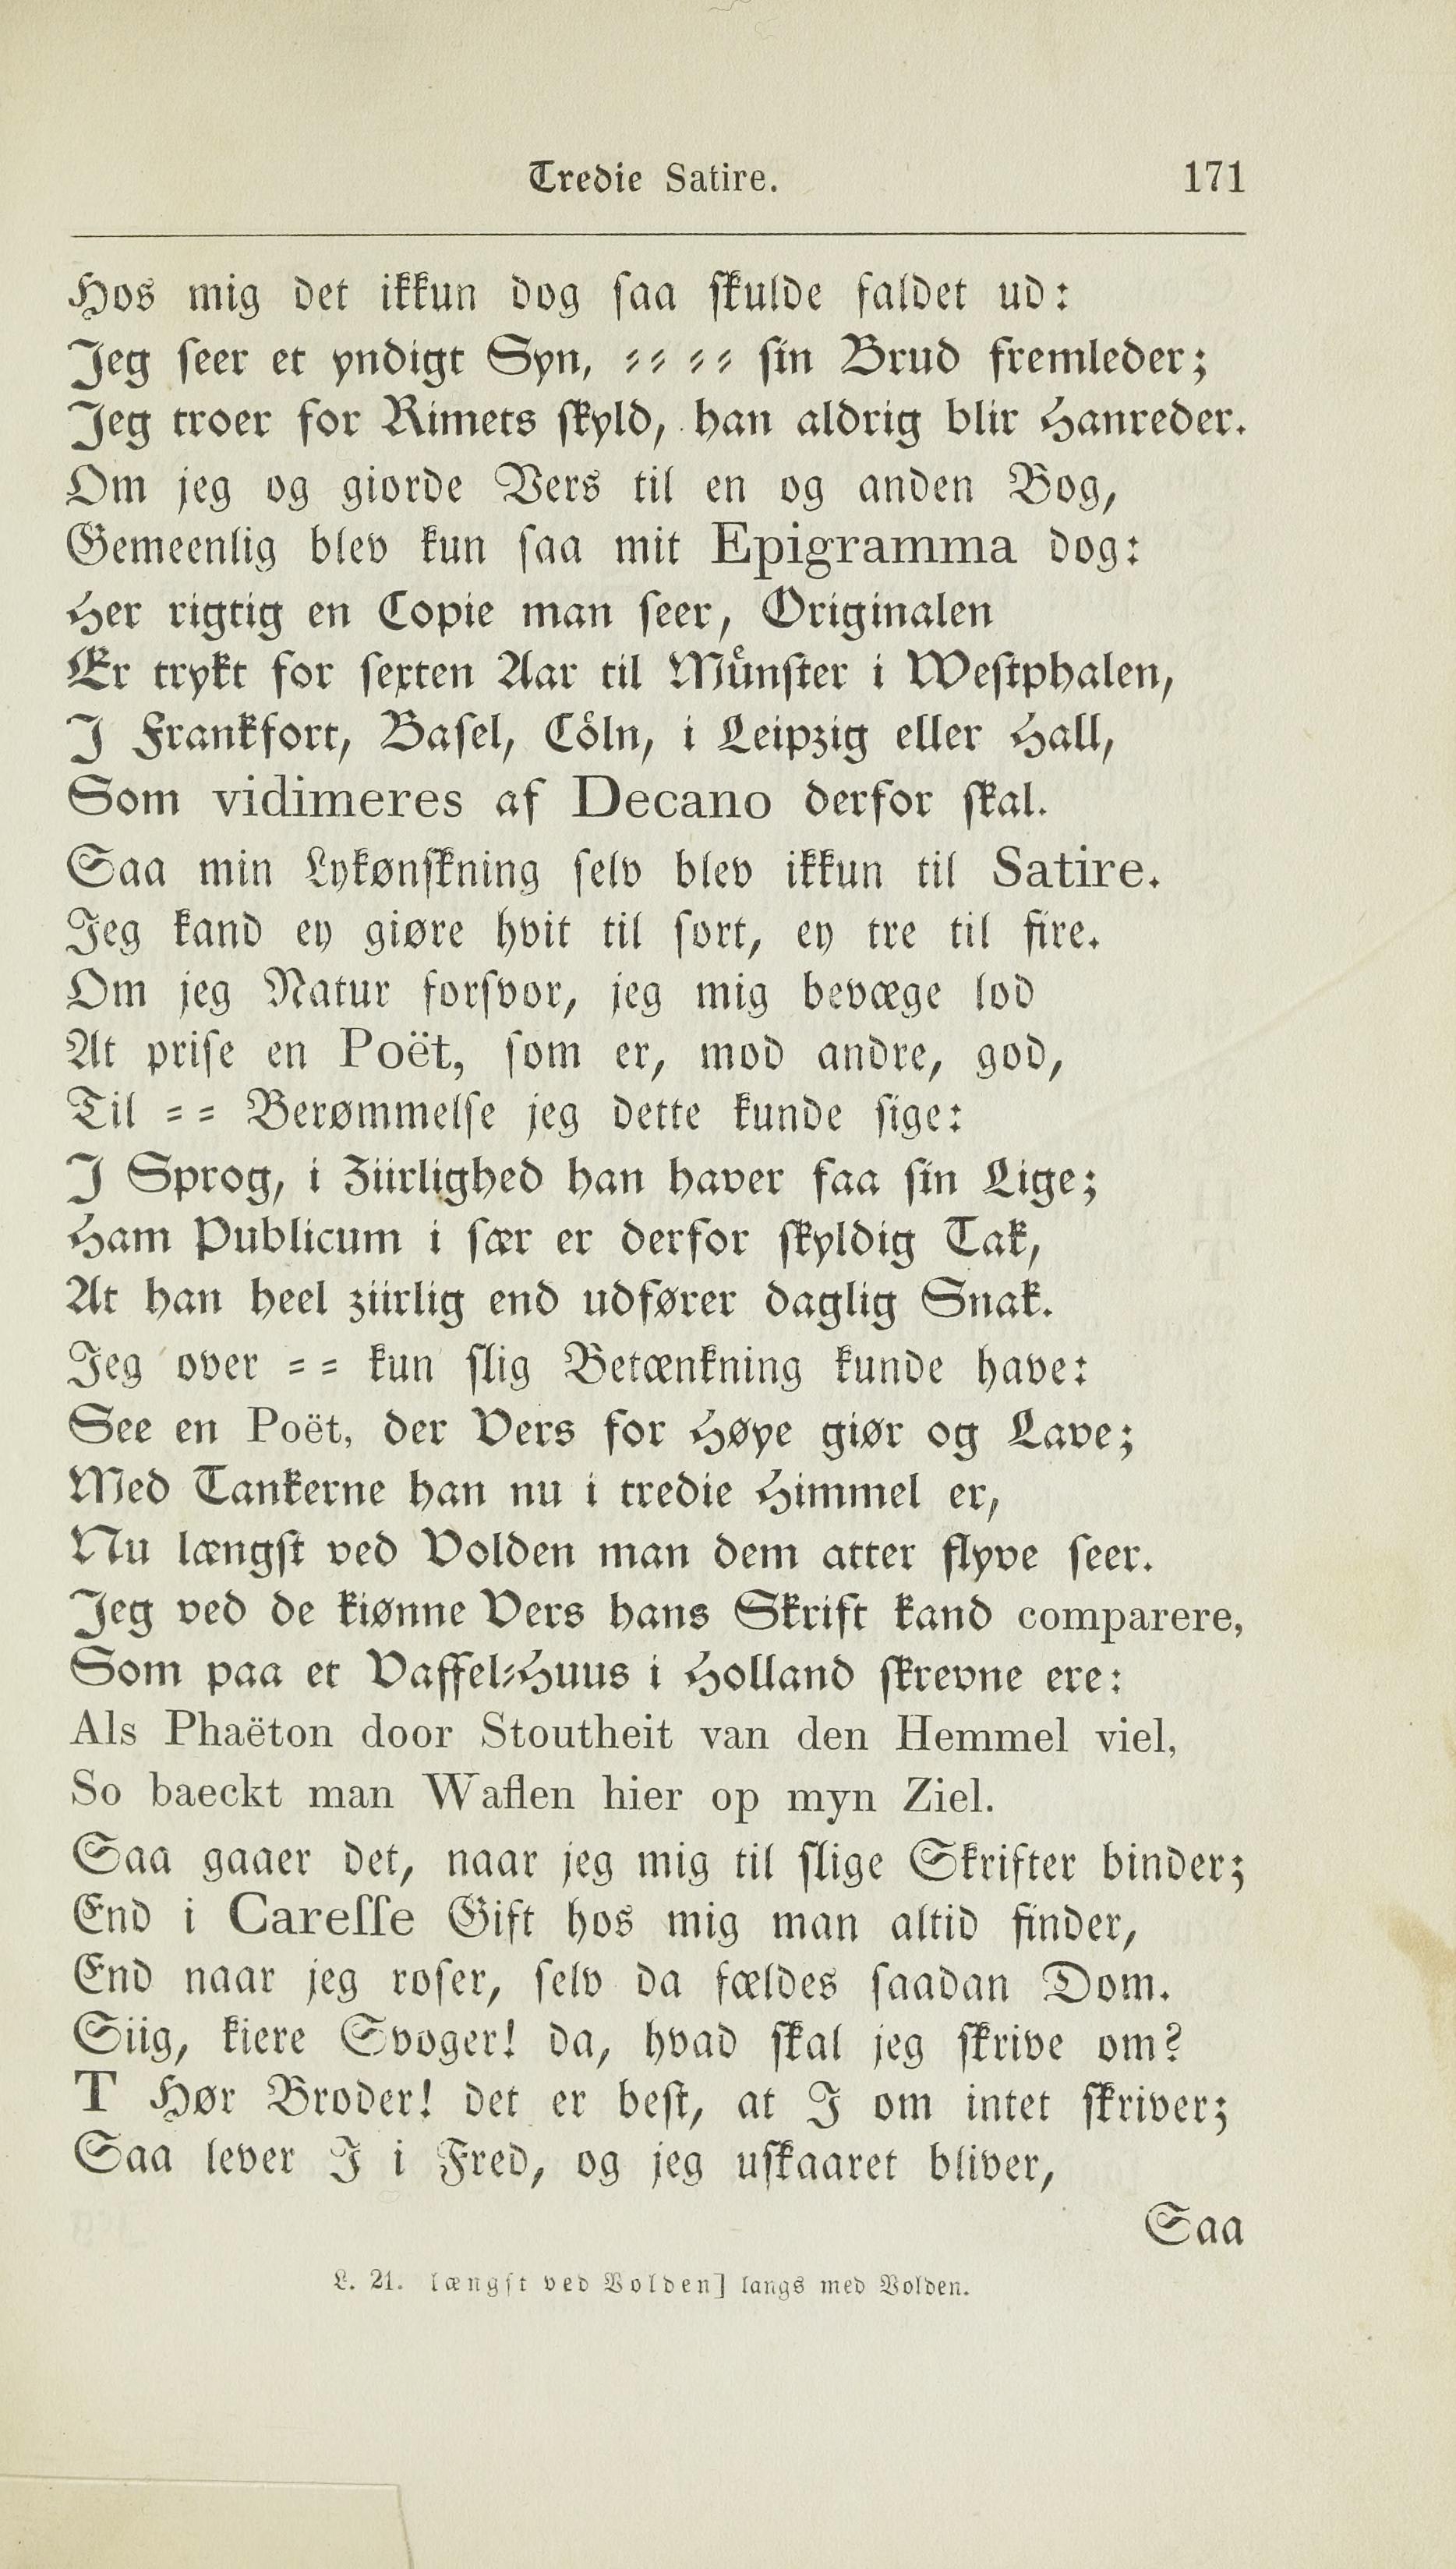 Tredie Satire. 171
Hos mig det ikkun dog saa skulde faldet ud:
Jeg seer et yndigt Syn, ⸗⸗ ⸗⸗ sin Brud fremleder;
Jeg troer for Rimets skyld, han aldrig blir Hanreder.
Om jeg og giorde Vers til en og anden Bog,
Gemeenlig blev kun saa mit Epigramma dog:
Her rigtig en Copie man seer, Originalen
Er trykt for sexten Aar til Můnster i Westphalen,
I Frankfort, Basel, Cöln, i Leipzig eller Hall,
Som vidimeres af Decano derfor skal.
Saa min Lykønskning selv blev ikkun til Satire.
Jeg kand ey giøre hvit til sort, ey tre til fire.
Om jeg Natur forsvor, jeg mig bevæge lod
At prise en Poët, som er, mod andre, god,
Til ⸗ ⸗ Berømmelse jeg dette kunde sige:
I Sprog, i Ziirlighed han haver faa sin Lige;
Ham Publicum i sær er derfor skyldig Tak,
At han heel ziirlig end udfører daglig Snak.
Jeg over ⸗ ⸗ kun slig Betænkning kunde have:
See en Poët, der Vers for Høye giør og Lave;
Med Tankerne han nu i tredie Himmel er,
Nu længst ved Volden man dem atter flyve seer.
Jeg ved de kiønne Vers hans Skrift kand comparere,
Som paa et Vaffel⸗Huus i Holland skrevne ere:
Als Phaëton door Stoutheit van den Hemmel viel,
So baeckt man Waflen hier op myn Ziel.
Saa gaaer det, naar jeg mig til slige Skrifter binder;
End i Caresse Gift hos mig man altid finder,
End naar jeg roser, selv da fældes saadan Dom.
Siig, kiere Svoger! da, hvad skal jeg skrive om?
T Hør Broder! det er best, at I om intet skriver;
Saa lever I i Fred, og jeg uskaaret bliver,
Saa
L. 21. længst ved Volden] langs med Volden.